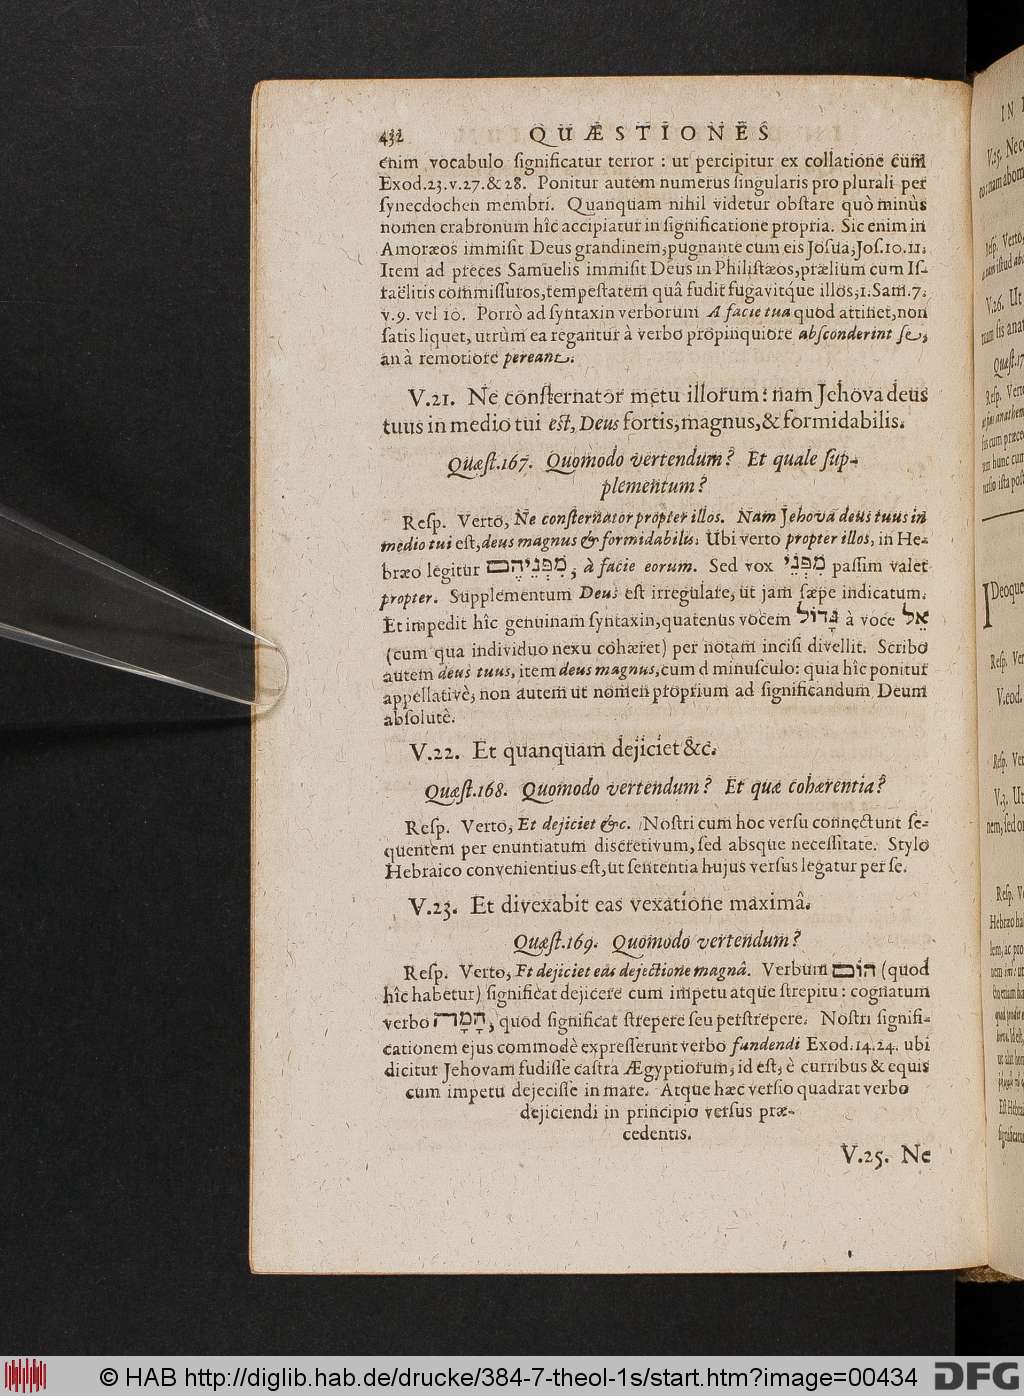 432 QUÆSTIONES
enim vocabulo ſignificatur terror : ut percipitur ex collatione cum
Exod.23.v.27.& 28. Ponitur autem numerus ſingularis pro plurali per
ſynecdochen membri. Quanquam nihil videtur obſtare quò minùs
nomen crabronum hîc accipiatur in ſignificatione propria. Sic enim in
Amoræos immiſit Deus grandinem, pugnante cum eis Joſua, Joſ.10.11.
Item ad preces Samuelis immiſit Deus in Philiſtæos, prælium cum Iſ-
raëlitis commiſſuros, tempeſtatem quâ fudit fugavitq́ue illos, 1.Sam.7.
v.9. vel 10. Porrò ad ſyntaxin verborum A facie tua quod attinet, non
ſatis liquet, utrùm ea regantur à verbo propinquiore abſconderint ſe,
an à remotiore pereant.
V.21. Ne conſternator metu illorum: nam Jehova deus
tuus in medio tui eſt, Deus fortis, magnus, & formidabilis.
Quæſt.167. Quomodo vertendum? Et quale ſup-
plementum?
Reſp. Verto, Ne conſternator propter illos. Nam Jehova deus tuus in
medio tui eſt, deus magnus & formidabilis. Ubi verto propter illos, in He-
bræo legitur מִפְּנֵיהֶם, à facie eorum. Sed vox מִפְּנֵי paſſim valet
propter. Supplementum Deus eſt irregulare, ut jam ſæpe indicatum.
Et impedit hîc genuinam ſyntaxin, quatenus vocem גָּדוֹל à voce אֵל
(cum qua individuo nexu cohæret) per notam inciſi divellit. Scribo
autem deus tuus, item deus magnus, cum d minuſculo: quia hîc ponitur
appellativè, non autem ut nomen proprium ad ſignificandum Deum
abſolutè.
V.22. Et quanquam dejiciet &c.
Quæſt.168. Quomodo vertendum? Et quæ cohærentia?
Reſp. Verto, Et dejiciet &c. Noſtri cum hoc verſu connectunt ſe-
quentem per enuntiatum diſcretivum, ſed absque neceſſitate. Stylo
Hebraico convenientius eſt, ut ſententia hujus verſus legatur per ſe.
V.23. Et divexabit eas vexatione maximâ.
Quæſt.169. Quomodo vertendum?
Reſp. Verto, Et dejiciet eas dejectione magnâ. Verbum הוּם (quod
hîc habetur) ſignificat dejicere cum impetu atque ſtrepitu: cognatum
verbo הָמָה, quod ſignificat ſtrepere ſeu perſtrepere. Noſtri ſignifi-
cationem ejus commodè expreſſerunt verbo fundendi Exod.14.24. ubi
dicitur Jehovam fudiſſe caſtra Ægyptiorum, id eſt, è curribus & equis
cum impetu dejeciſſe in mare. Atque hæc verſio quadrat verbo
dejiciendi in principio verſus præ-
cedentis.
V.25. Ne
© HAB http://diglib.hab.de/drucke/384-7-theol-1s/start.htm?image=00434
DFG